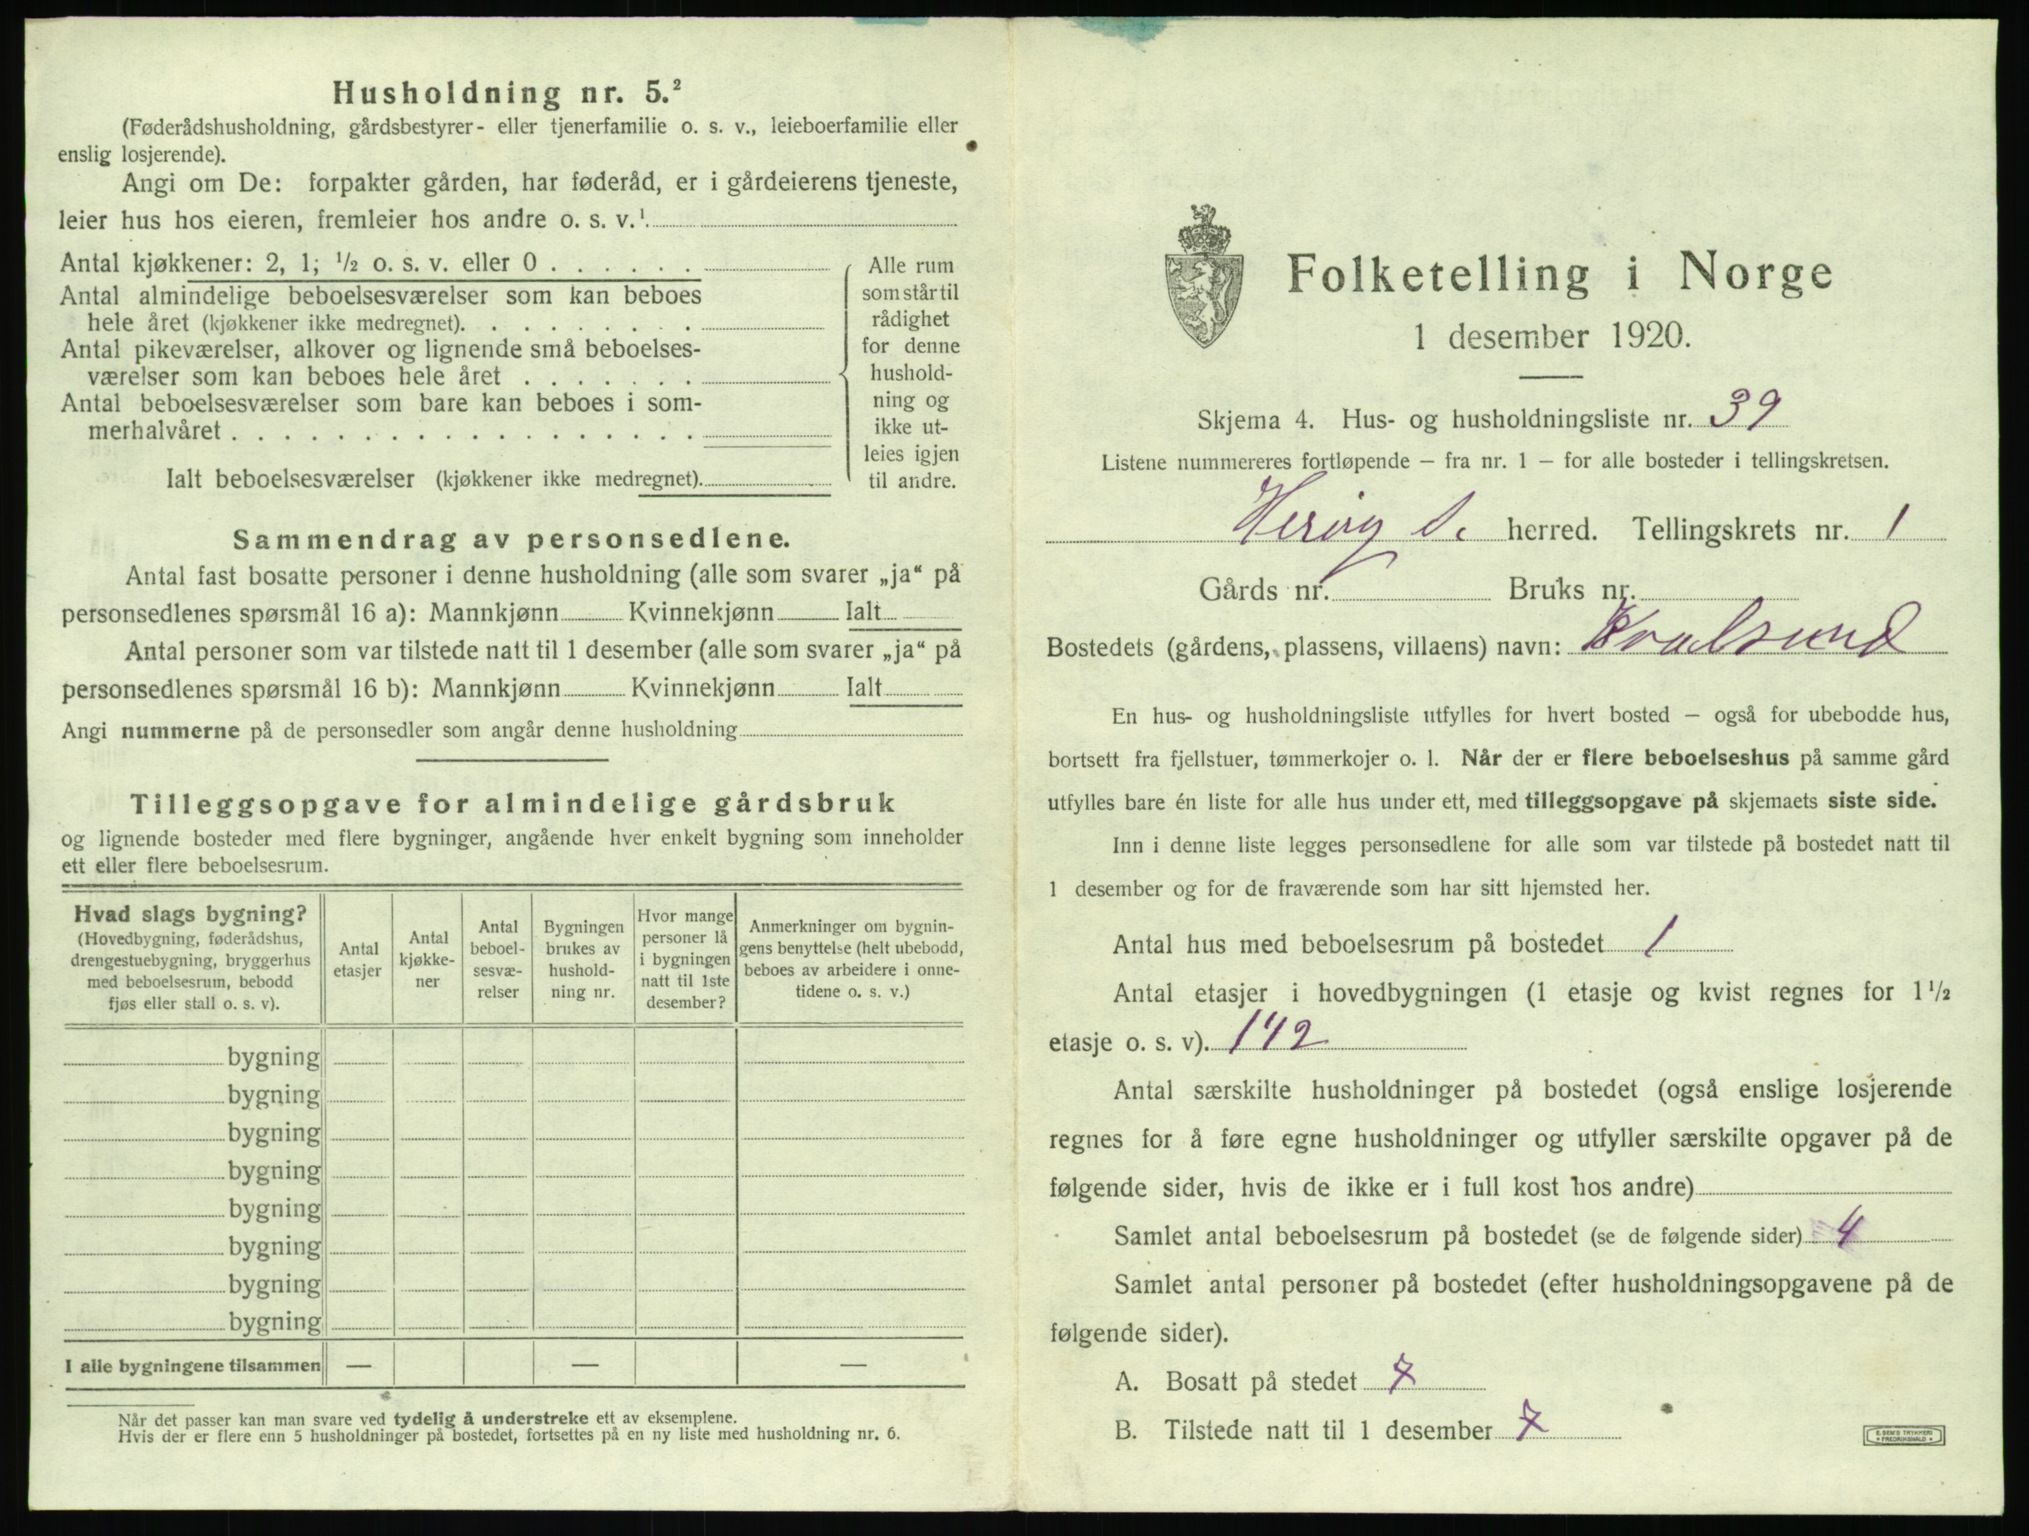 Husholdning nr. 5.²
(Føderådshusholdning, gårdsbestyrer- eller tjenerfamilie o. s. v., leieboerfamilie eller
enslig losjerende).
Angi om De: forpakter gården, har føderåd, er i gårdeierens tjeneste,
leier hus hos eieren, fremleier hos andre o. s. v.¹
Antal kjøkkener: 2, 1; ½ o. s. v. eller 0 . . . . . .
Antal almindelige beboelsesværelser som kan beboes
hele året (kjøkkener ikke medregnet). . . . . . . . .
Antal pikeværelser, alkover og lignende små beboelses-
værelser som kan beboes hele året . . . . . . .
Antal beboelsesværelser som bare kan beboes i som-
merhalvåret . . . . . . . . . . . . . . . . . .
Ialt beboelsesværelser (kjøkkener ikke medregnet).
Alle rum
som står til
rådighet
for denne
hushold-
ning og
ikke ut-
leies igjen
til andre.
Sammendrag av personsedlene.
Antal fast bosatte personer i denne husholdning (alle som svarer „ja“ på
personsedlenes spørsmål 16 a): Mannkjønn Kvinnekjønn Ialt
Antal personer som var tilstede natt til 1 desember (alle som svarer „ja“ på
personsedlenes spørsmål 16 b): Mannkjønn Kvinnekjønn Ialt
Angi nummerne på de personsedler som angår denne husholdning
Tilleggsopgave for almindelige gårdsbruk
og lignende bosteder med flere bygninger, angående hver enkelt bygning som inneholder
ett eller flere beboelsesrum.
Hvad slags bygning?
(Hovedbygning, føderådshus,
drengestuebygning, bryggerhus
med beboelsesrum, bebodd
fjøs eller stall o. s. v).
Antal
etasjer
Antal
kjøkke-
ner
Antal
beboel-
sesvæ-
relser
Bygningen
brukes av
hushold-
ning nr.
Hvor mange
personer lå
i bygningen
natt til 1ste
desember?
Anmerkninger om bygnin-
gens benyttelse (helt ubebodd,
beboes av arbeidere i onne-
tidene o. s. v.)
bygning
bygning
bygning
bygning
bygning
bygning
bygning
bygning
I alle bygningene tilsammen — — —
Når det passer kan man svare ved tydelig å understreke ett av eksemplene.
Hvis der er flere enn 5 husholdninger på bostedet, fortsettes på en ny liste med husholdning nr. 6.
Folketelling i Norge
1 desember 1920.
Skjema 4. Hus- og husholdningsliste nr. 39
Listene nummereres fortløpende – fra nr. 1 – for alle bosteder i tellingskretsen.
Herøy S. herred. Tellingskrets nr. 1
Gårds nr. Bruks nr.
Bostedets (gårdens, plassens, villaens) navn: Kvalsund
En hus- og husholdningsliste utfylles for hvert bosted – også for ubebodde hus,
bortsett fra fjellstuer, tømmerkojer o. l. Når der er flere beboelseshus på samme gård
utfylles bare én liste for alle hus under ett, med tilleggsopgave på skjemaets siste side.
Inn i denne liste legges personsedlene for alle som var tilstede på bostedet natt til
1 desember og for de fraværende som har sitt hjemsted her.
Antal hus med beboelsesrum på bostedet 1
Antal etasjer i hovedbygningen (1 etasje og kvist regnes for 1½
etasje o. s. v). 1 1/2
Antal særskilte husholdninger på bostedet (også enslige losjerende
regnes for å føre egne husholdninger og utfyller særskilte opgaver på de
følgende sider, hvis de ikke er i full kost hos andre)
Samlet antal beboelsesrum på bostedet (se de følgende sider) 4
Samlet antal personer på bostedet (efter husholdningsopgavene på de
følgende sider).
A. Bosatt på stedet 7
B. Tilstede natt til 1 desember 7
E. SEM'S TRYKKERI
FREDRIKSHALD